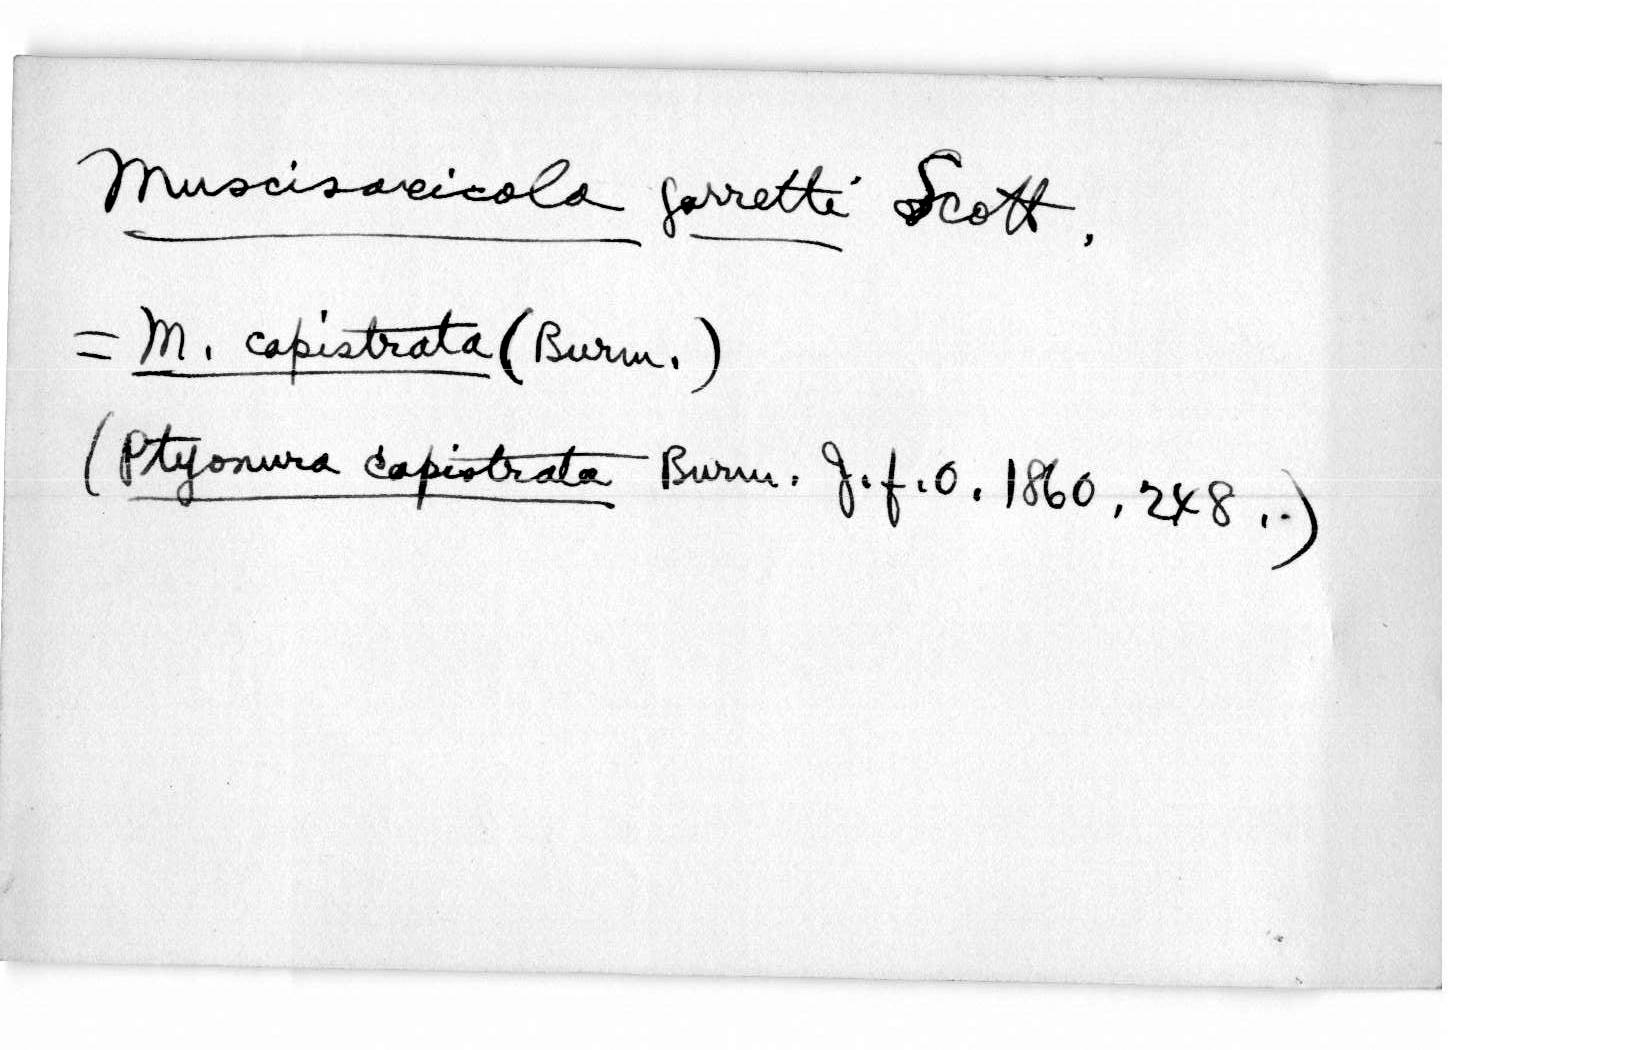 Muscisaxicola garretti Scott,
= M. capistrata (Burm.)
(Ptyonura capistrata Burm. J.f.O. 1860, 248..)